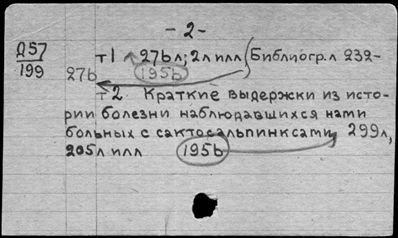 - 2 -
Д57
199
т1 27бл; 2л илл (Библиогр.л 232-
27б 195б
т2. Краткие выдержки из исто-
рии болезни наблюдавшихся нами
больных с сактосальпинксами, 299л,
205л илл 195б